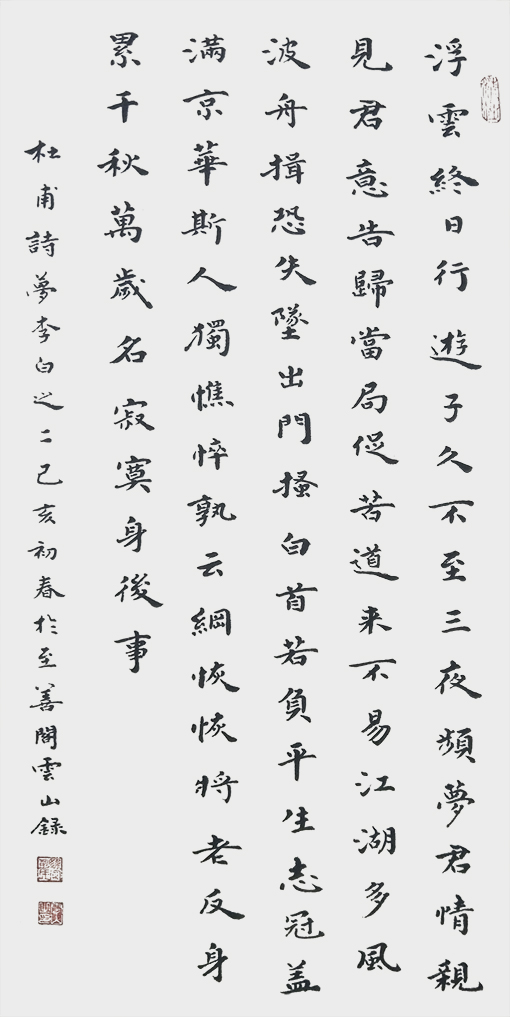 浮雲終日行遊子久不至三夜頻夢君情親
見君意告歸當局促苦道来不易江湖多風
波舟揖恐失墜出門搔白首若負平生志冠蓋
滿京華斯人獨憔悴孰云綱恢恢将老反身
累千秋萬歲名寂寞身後事
杜甫詩夢李白之二己亥初春於至善閣雲山録